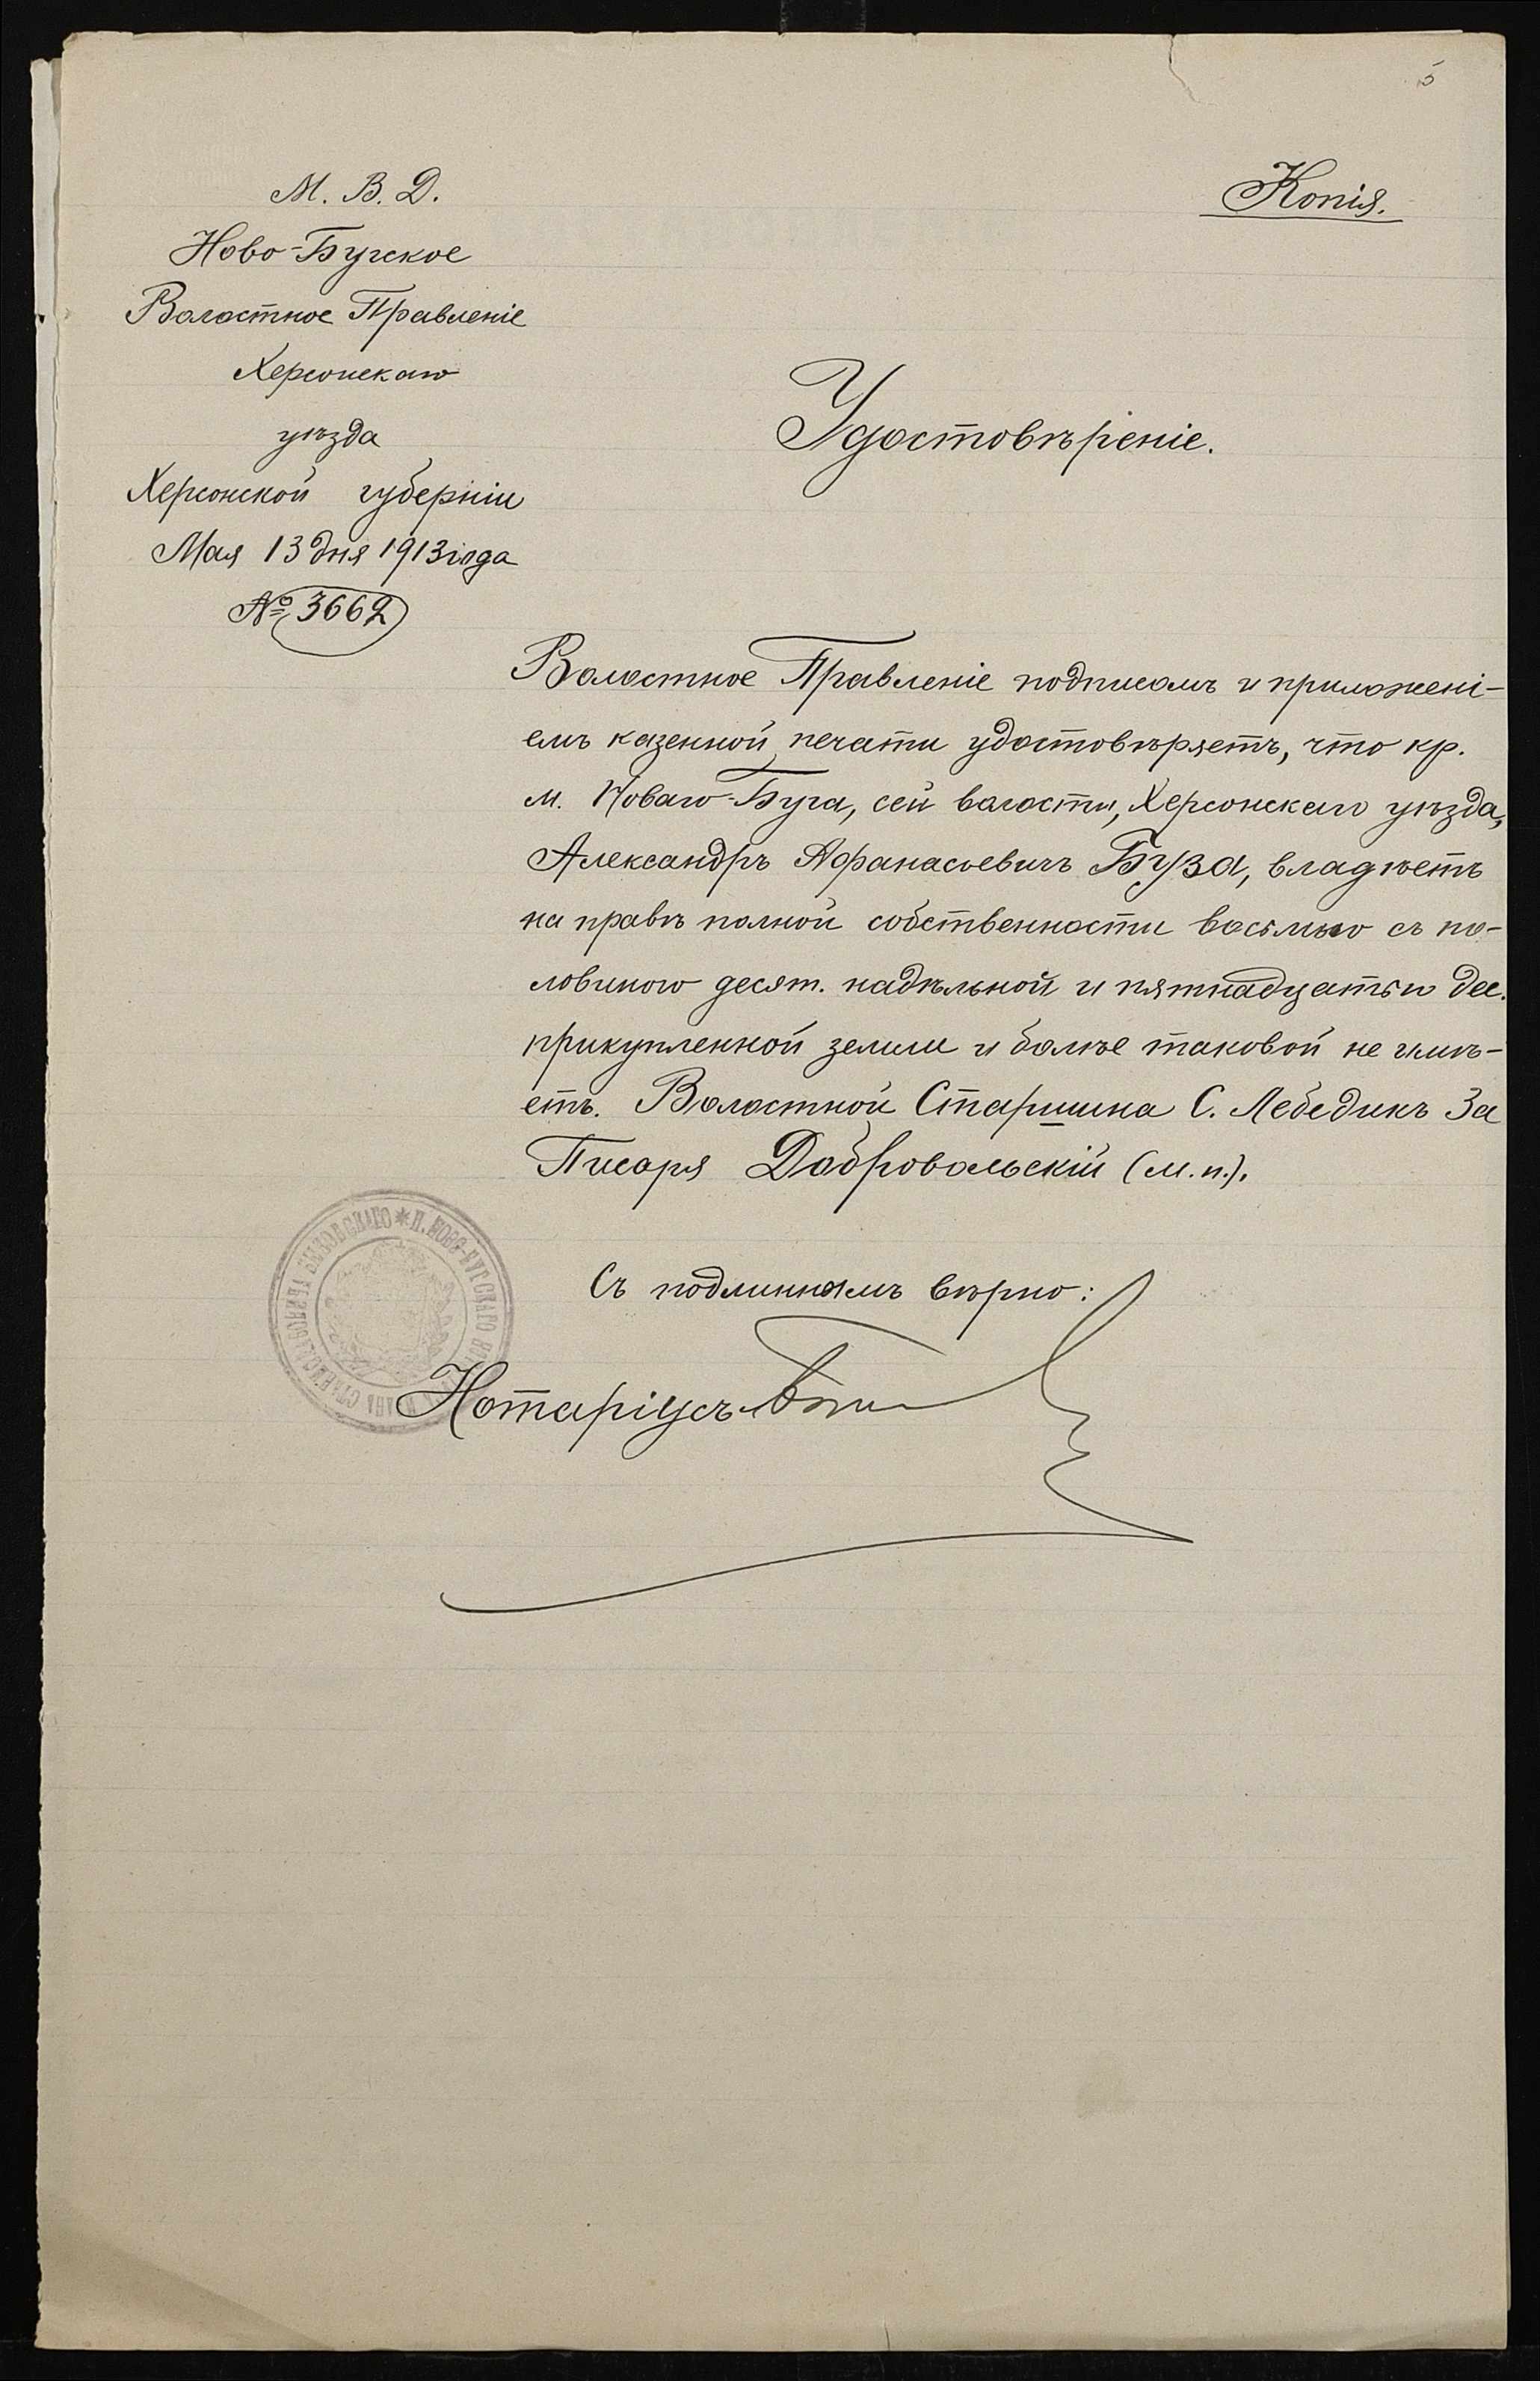 5
Копія.
М. В. Д.
Ново-Бугское
Волостное Правленіе
Херсонскаго
уѣзда
Херсонской губерніи
Мая 13 дня 1913 года
№ 3662
Удостовѣреніе.
Волостное Правленіе подписомъ и приложені-
емъ казенной печати удостовѣряетъ, что кр.
м. Новаго-Буга, сей волости, Херсонскаго уѣзда,
Александръ Афанасьевичъ Буза, владѣетъ
на правѣ полной собственности восьмью съ по-
ловиною десят. надѣльной и пятнадцатью дес.
прикупленной земли и болѣе таковой не имѣ-
етъ. Волостной Старшина С. Лебединъ За
Писаря Добровольскій (м.п.).
Съ подлиннымъ вѣрно:
Нотаріусъ
Н. НОВО-БУГСКАГО